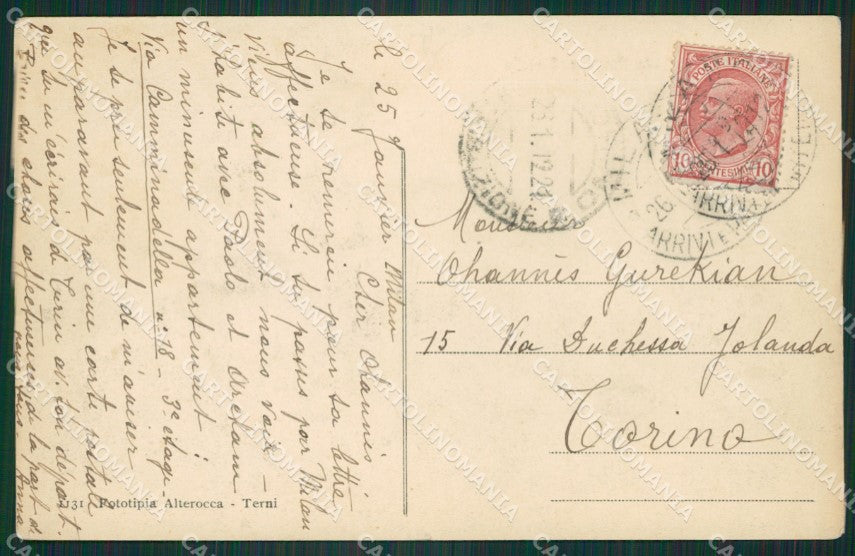 le 25 Janvier Milan
Cher Ohannès
Je te remercie pour ta lettre
affectueuse. Si tu passes par Milan
viens absolument nous voir –
J'habite avec Paolo et
un minuscule appartement:
Via Camminadella n° 18 – 3e étage.
Je te prie seulement de m'aviser
auparavant par une carte postale
que tu m'écrirais de Turin av. ton départ.
des choses affectueuses de la part de
nous tous. Anna
1131 Fototipia Alterocca - Terni
POSTE ITALIANE
10 CENTESIMI 10
MILANO
ARRIVI E
Monsieur
Ohannès Gurekian
15 Via Duchessa Jolanda
Torino
CARTOLINOMANIA